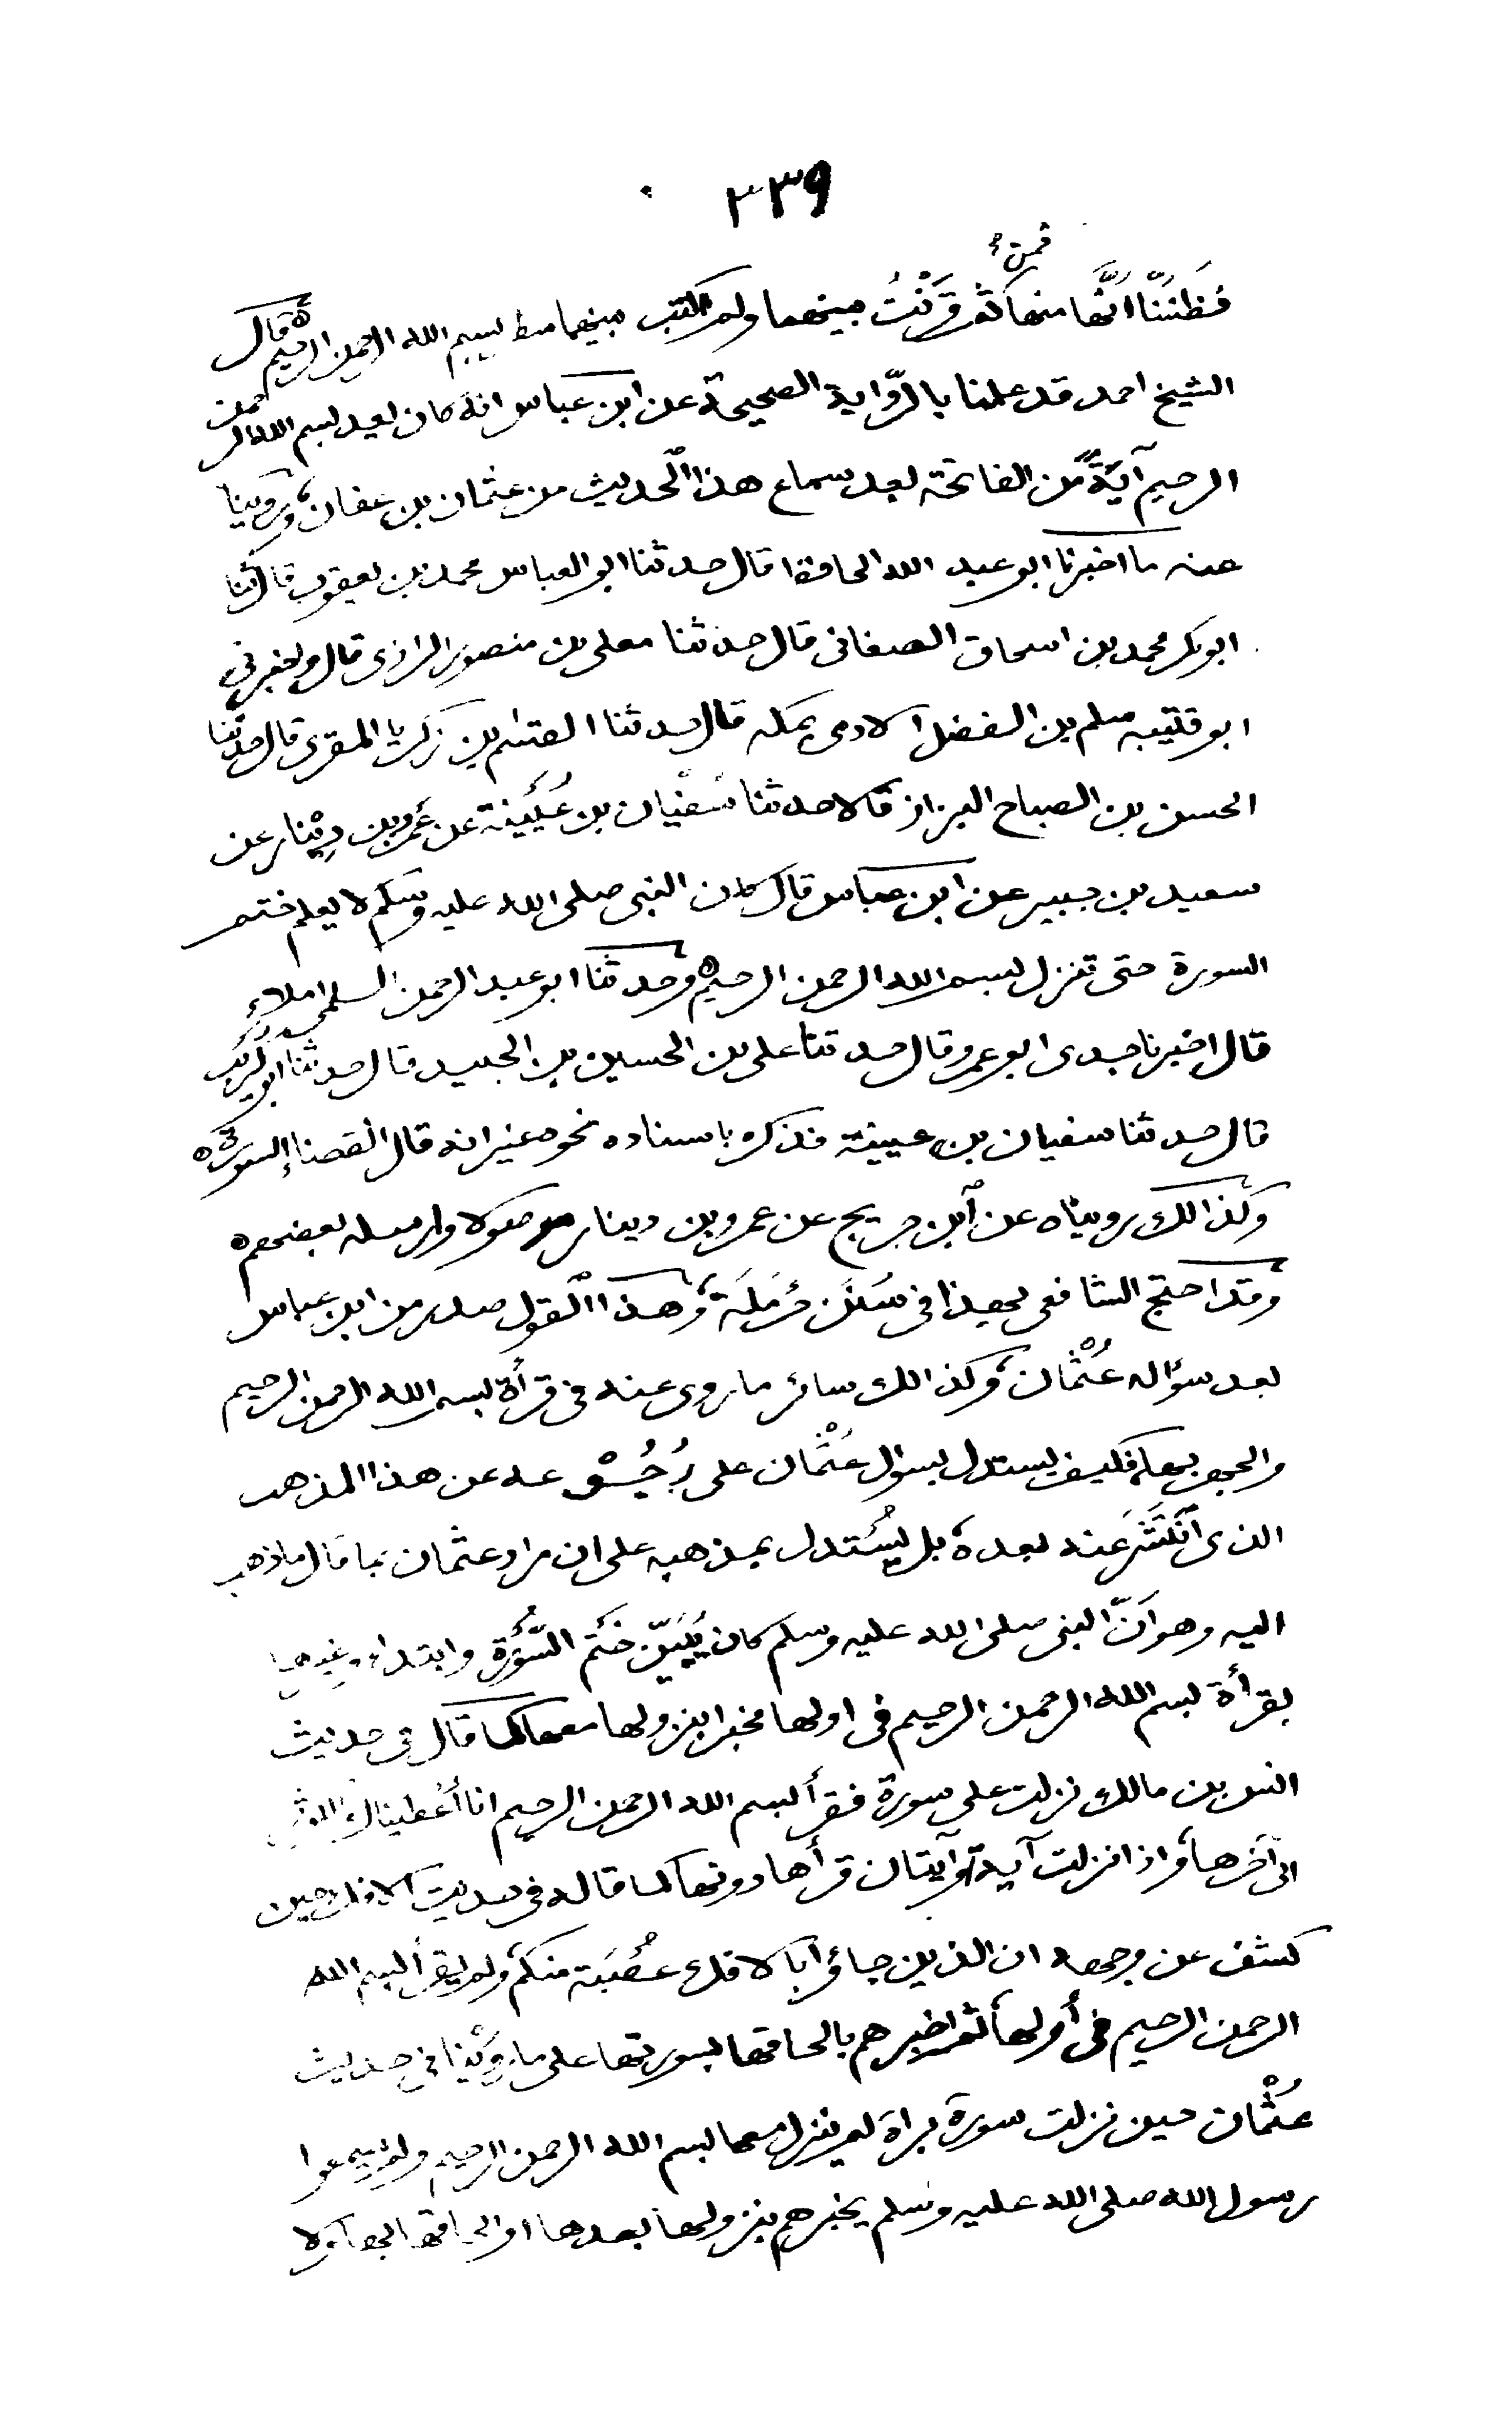 ٣٣٩
فمن ثم
فَظَنَنَّا اَنَّهَا منها قَرَنْتُ بينهما ولم اكتب بينهما سطر بسم الله الرحمن الرحيم ه قال
الشيخ احمد قد علمنا بالرّواية الصحيحة عن ابن عباس انه كان يعد بسم الله الرحمن
الرحيم آيَةً من الفاتحة بعد سماع هذا الحديث من عثمان بن عفان، وروينا
عنه ما اخبرنا ابو عبد الله الحافظ قال حدثنا ابو العباس محمد بن يعقوب قال ثنا
ابو بكر محمد بن اسحاق الصغانى قال حدثنا معلى بن منصور الرازى قال واخبرنى
ابو قتيبه سلم بن الفضل الادمى بمكه قال حدثنا القسم بن زكريا المقرى قال حدثنا
الحسن بن الصباح البزاز قالا حدثنا سُفْيان بن عُيَيْنة عن عَمرو بن دِيْنار عن
سعيد بن جبير عن ابن عباس قال كان النبى صلى الله عليه وسلم لا يعلم ختم
السورة حتى تنزل بسم الله الرحمن الرحيم ه وحدثنا ابو عبد الرحمن السلمى املاءً
قال اخبرنا جدى ابو عمرو قال حدثنا على بن الحسين بن الجنيد قال حدثنا ابو كريب
قال حدثنا سفيان بن عيينة فذكره باسناده نحوه غير انه قال انقضاء السورة ه
وكذالك رويناه عن ابن جريج عن عمرو بن دينار موصولا وارسله بعضهم ه
وقد احتج الشافعى بهذا فى سُنَن حَرْمَلَة، وهذا القول صدر من ابن عباس
بعد سؤاله عُثْمان، وكذالك سائر ما روى عنه فى قرأة بسم الله الرحمن الرحيم
والجهر بها، فكيف يستدل بسؤال عُثْمان على رُجُوْعه عن هذا المذهب
الذى انْتَشَرَ عَنه بعده، بل يُسْتدل بمذهبه على ان مراد عثمان بما قال ما ذهب
اليه وهو اَنَّ النبى صلى الله عليه وسلم كان يُبَيِّن خَتْم السُّوْرَة وابتداء غيرها
بقرأة بسم الله الرحمن الرحيم فى اولها مخبرا بنزولها معها كما قال فى حديث
انس بن مالك نزلت على سورة فقرأ بسم الله الرحمن الرحيم انا أعْطيناك الكوثر
الى آخرها، واذا نزلت آية او آيتان قرأها دونها كما قاله فى حديث الافك حين
كشف عن وجهه ان الذين جاؤا بالافك عُصْبَة منكم، ولم يقرأ بسم الله
الرحمن الرحيم فى أولها ثم اخبرهم بالحاقها بسورتها على ما روينا فى حديث
عُثْمان حين نزلت سورة براة لم ينزل معها بسم الله الرحمن الرحيم ولم يسمعوا
رسول الله صلى الله عليه وسلم يخبرهم بنزولها بعدها او الحاقها بها ولا